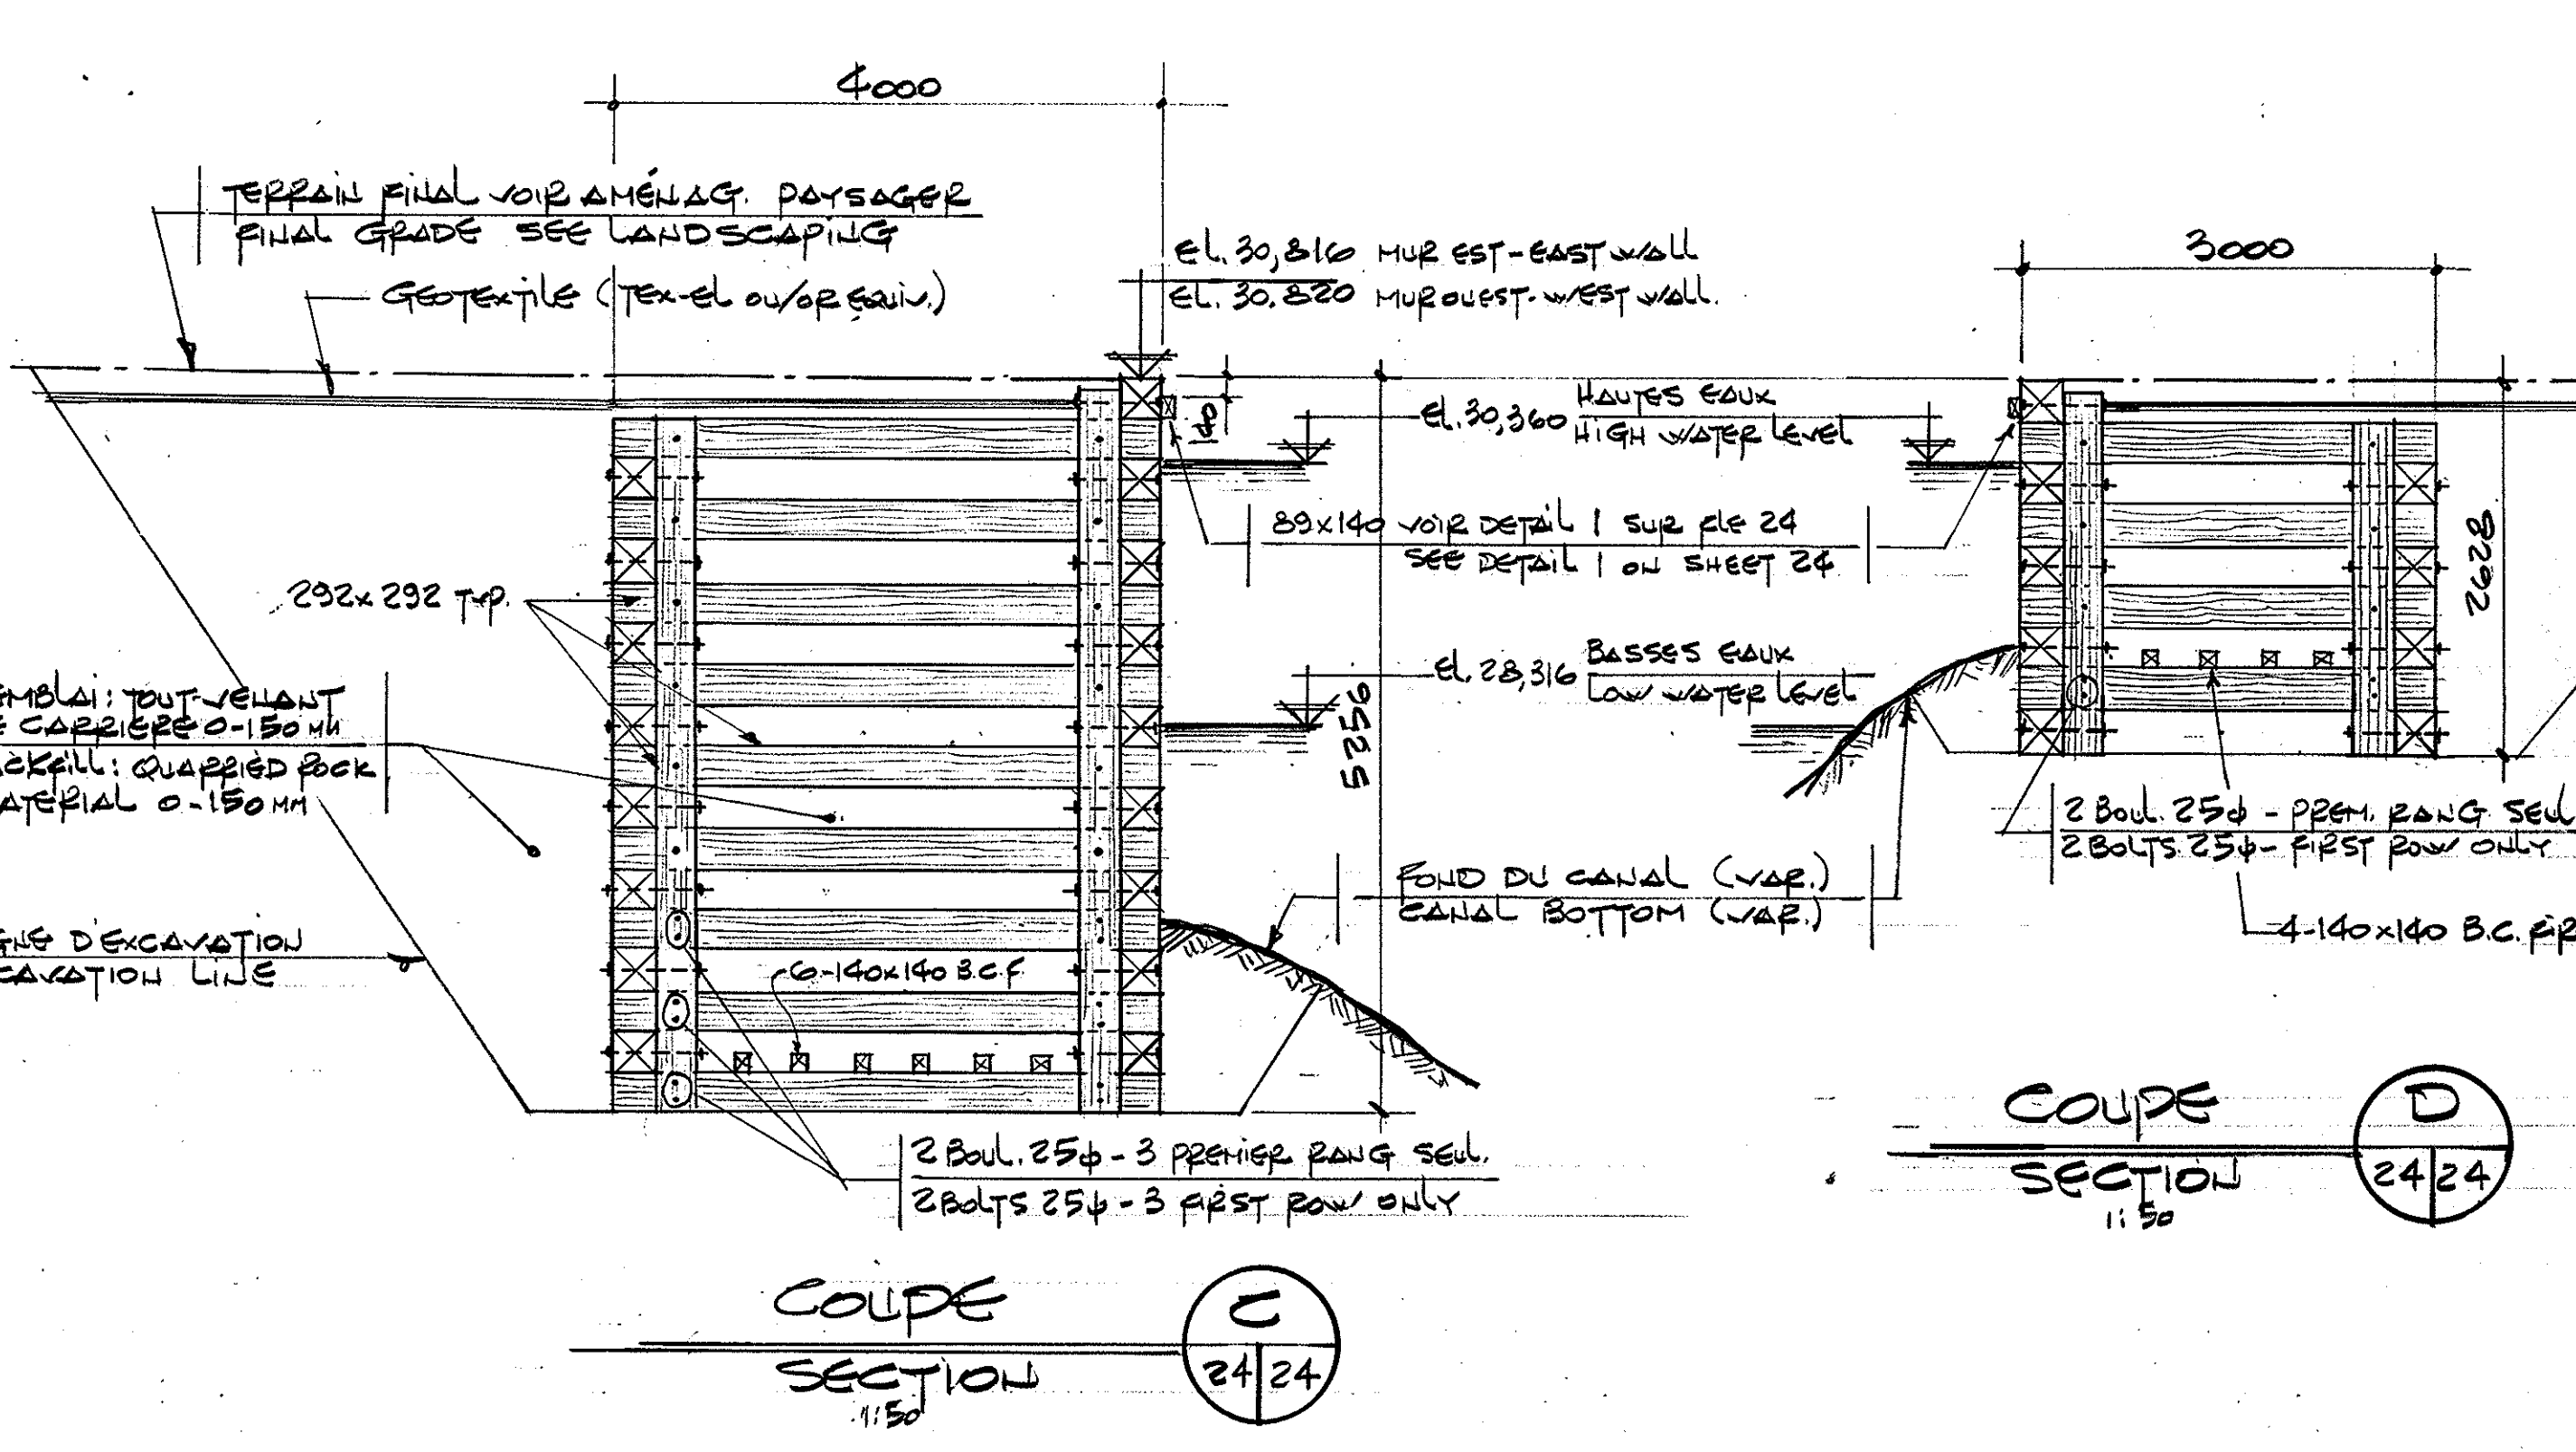 4000
TERRAIN FINAL VOIR AMÉNAG. PAYSAGER
FINAL GRADE SEE LANDSCAPING
GEOTEXTILE (TEX-EL OU/OR EQUIV.)
EL. 30,816 MUR EST-EAST WALL
EL. 30.820 MUR OUEST-WEST WALL.
3000
140
EL. 30,360 HAUTES EAUX
HIGH WATER LEVEL
89x140 VOIR DETAIL 1 SUR FLE 24
SEE DETAIL 1 ON SHEET 24
292x292 TYP.
2628
EL. 28,316 BASSES EAUX
LOW WATER LEVEL
5256
EMBLAI: TOUT-VENANT
E CARRIERE 0-150 MM
ACKFILL: QUARRIED ROCK
ATERIAL 0-150 MM
2 BOUL. 25ϕ - PREM. RANG SEUL
2 BOLTS 25ϕ - FIRST ROW ONLY
FOND DU CANAL (VAR.)
CANAL BOTTOM (VAR.)
4-140x140 B.C. FIR
GNE D'EXCAVATION
CAVATION LINE
6-140x140 B.C.F.
2 BOUL. 25ϕ - 3 PREMIER RANG SEUL.
2 BOLTS 25ϕ - 3 FIRST ROW ONLY
COUPE
SECTION
1:50
D
24|24
COUPE
SECTION
1:50
C
24|24